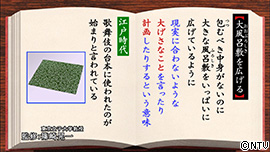 【大風呂敷を広げる】
おおぶろしき
包むべき中身がないのに
大きな風呂敷をいっぱいに
ふろしき
広げているように
現実に合わないような
大げさなことを言ったり
計画したりするという意味
江戸時代
歌舞伎の台本に使われたのが
始まりと言われている
©NTV